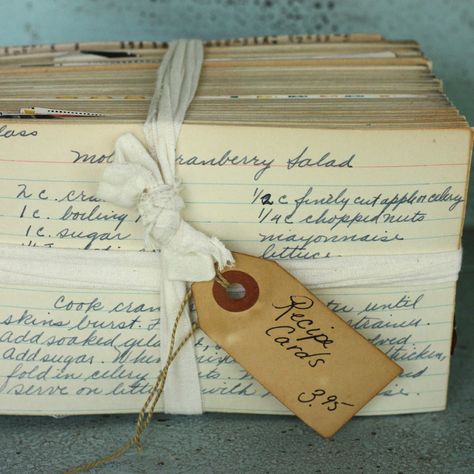 lass
Mol Cranberry Salad
2 c. cran
1 c. boiling
1 c. sugar
1/2 c finely cut apple or celery
1/4 c chopped nuts
mayonnaise
lettuce
Cook cran water until
skins burst.
Add soaked gela
add sugar. When thicken,
fold in celery nuts
serve on lettuce
Recipe
Cards
3.95